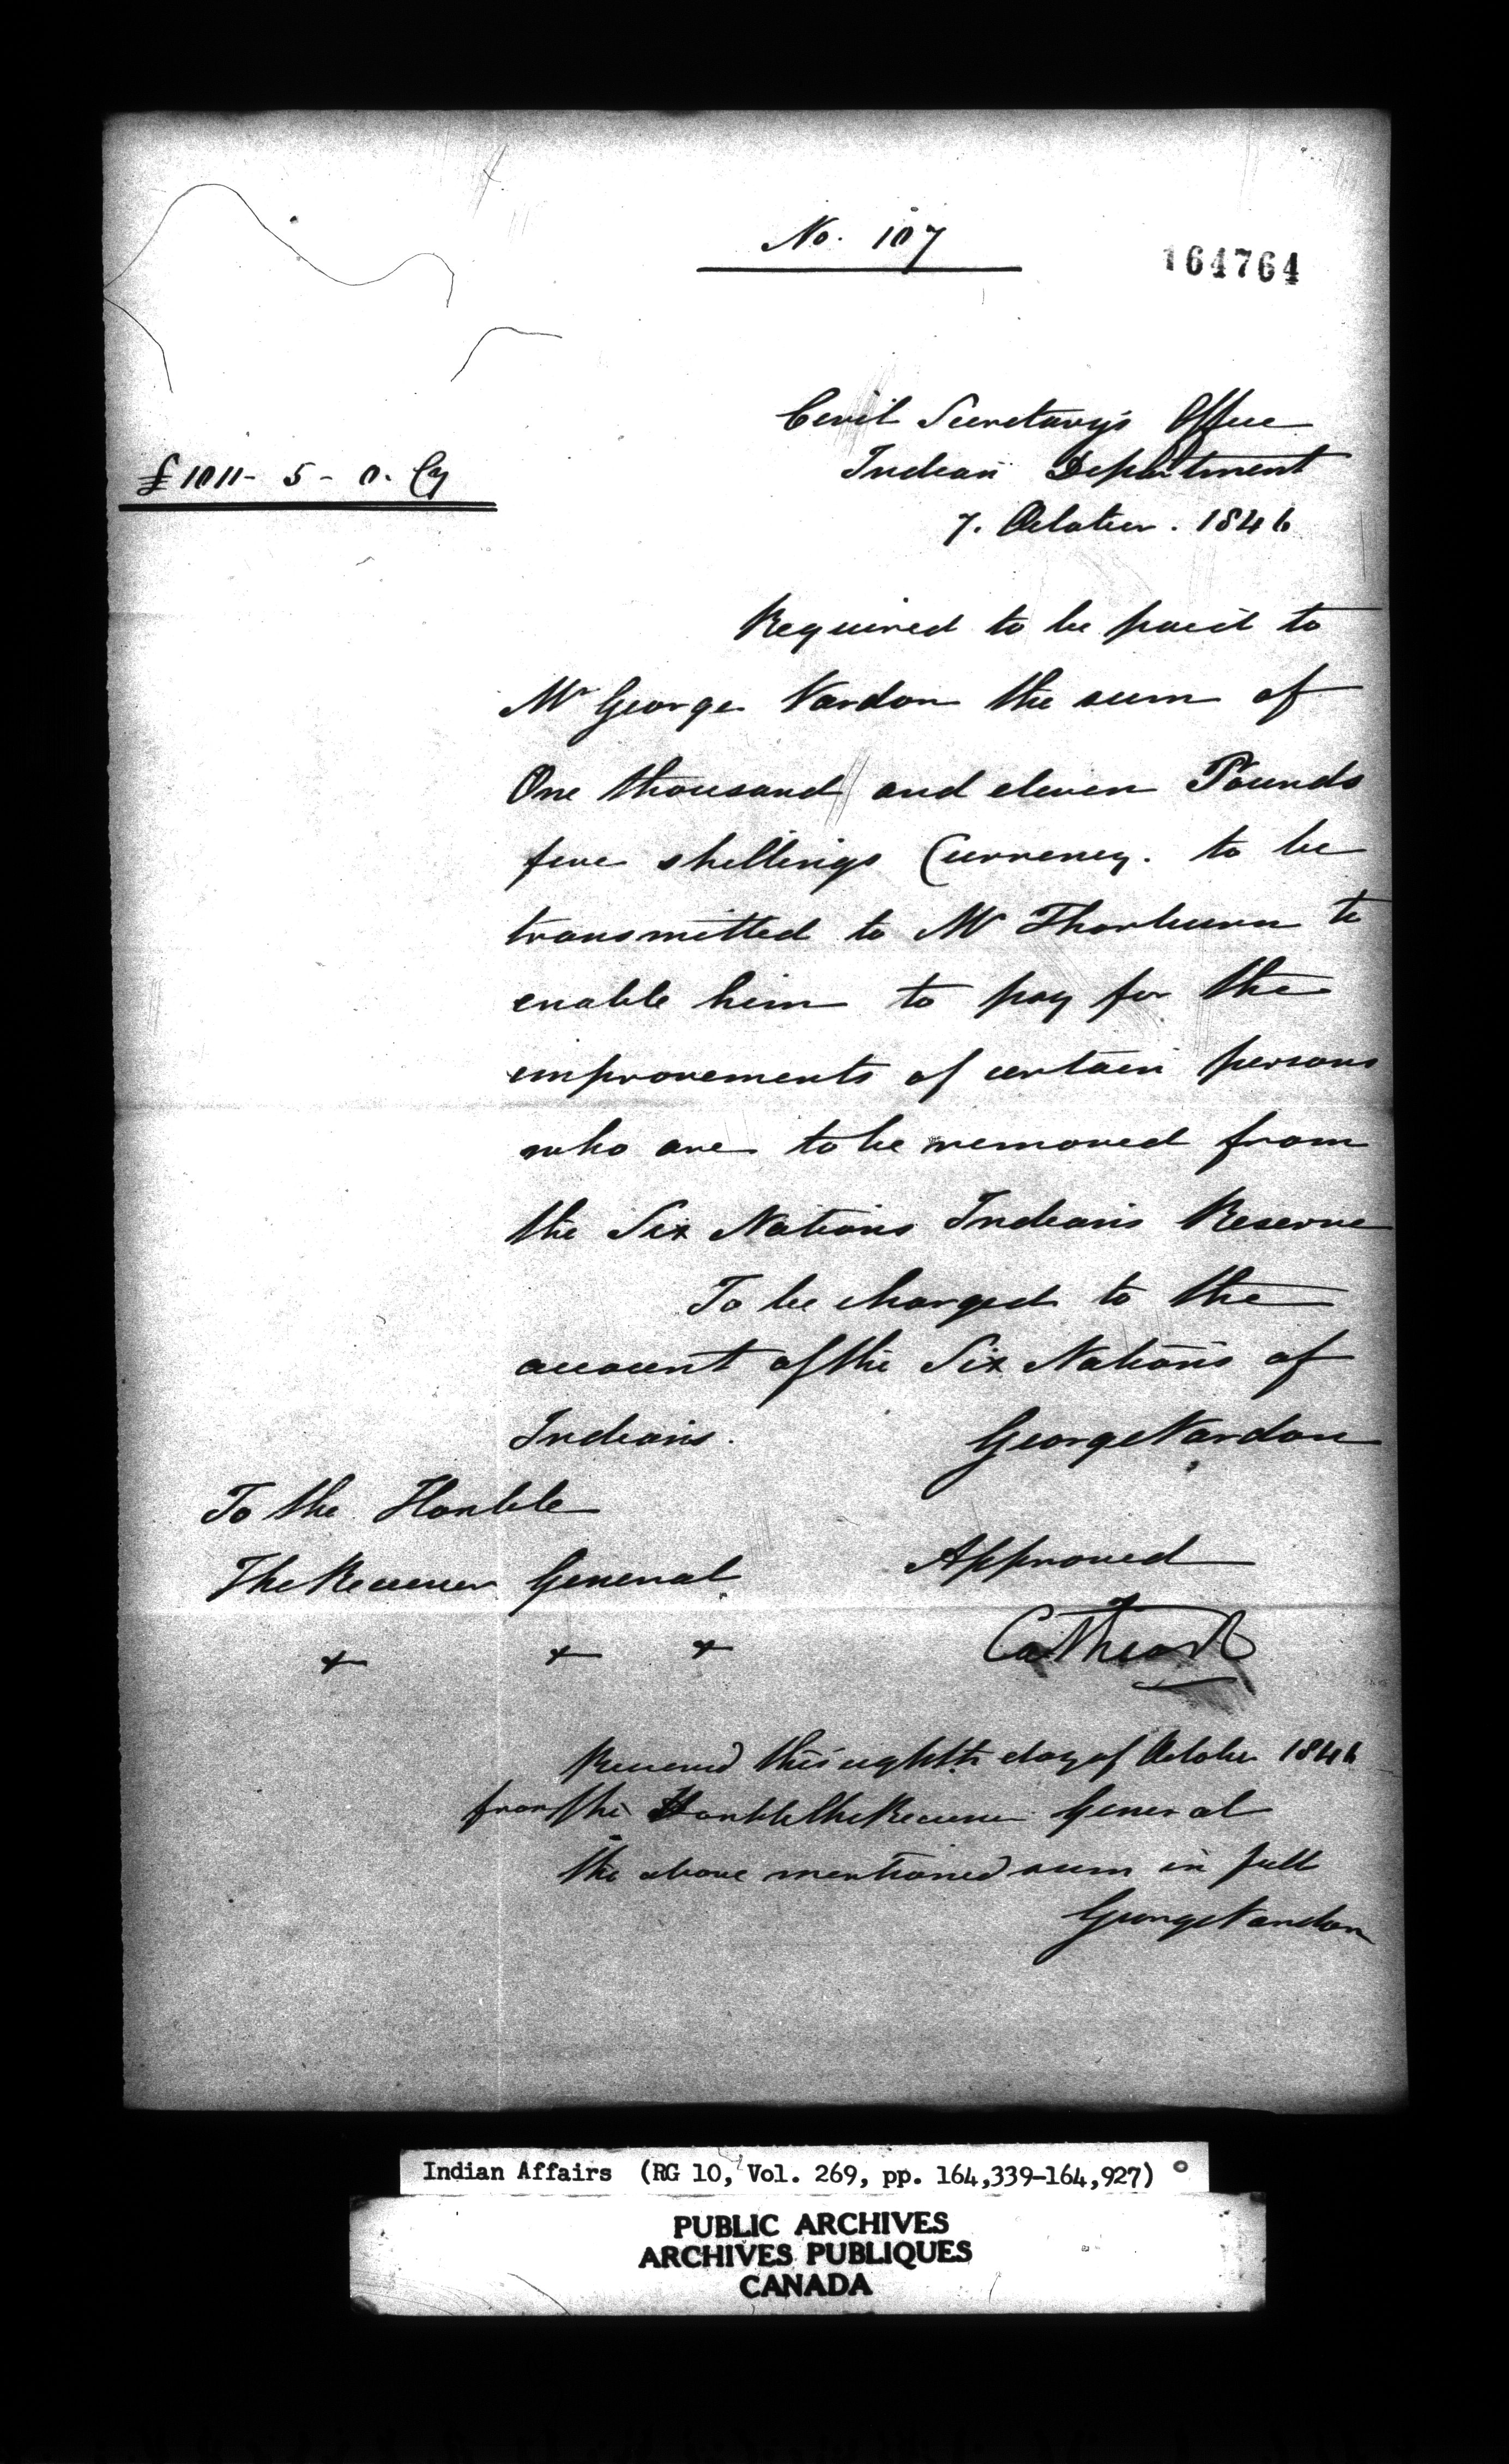 No. 107
164764
Civil Secretary's Office
Indian Department
£1011 - 5 - 0. Cy
7. October. 1846
Required to be paid to
Mr George Vardon the sum of
One thousand and eleven Pounds
five shillings Currency. to be
transmitted to Mr Thorburn to
enable him to pay for the
improvements of certain persons
who are to be removed from
the Six Nations Indians Reserve
To be charged to the
account of the Six Nations of
Indians.
George Vardon
To the Honble
The Receiver General
Approved
Cathcart
Received this eighth day of October 1846
from the Honble the Receiver General
the above mentioned sum in full
George Vardon
Indian Affairs (RG 10, Vol. 269, pp. 164,339-164,927)
PUBLIC ARCHIVES
ARCHIVES PUBLIQUES
CANADA